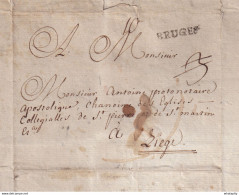 BRUGES
A Monsieur
Monsieur Antoine protonotaire
Apostolique, Chanoine des Eglises
Collegialles de St. et de St. martin
A Liege